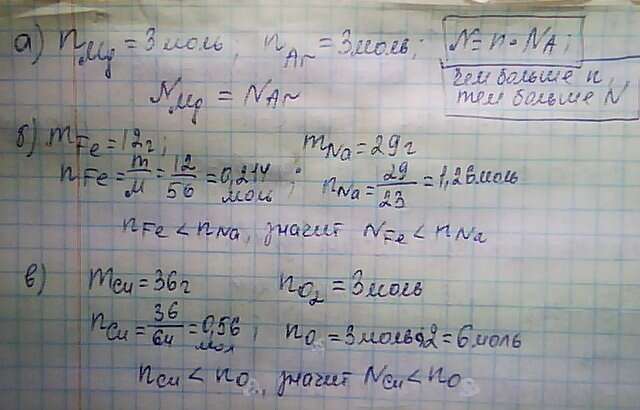 а) n Mg = 3 моль; n Ar = 3 моль; N = n · NA;
чем больше n,
тем больше N
N Mg = N Ar
б) m Fe = 12г; m Na = 29 г
n Fe = m/M = 12/56 = 0,214 моль; n Na = 29/23 = 1,26 моль
n Fe < n Na, значит N Fe < n Na
в) m Cu = 36г n O2 = 3 моль
n Cu = 36/64 = 0,56 мол; n O = 3 моль·2 = 6 моль
n Cu < n O, значит N Cu < n O